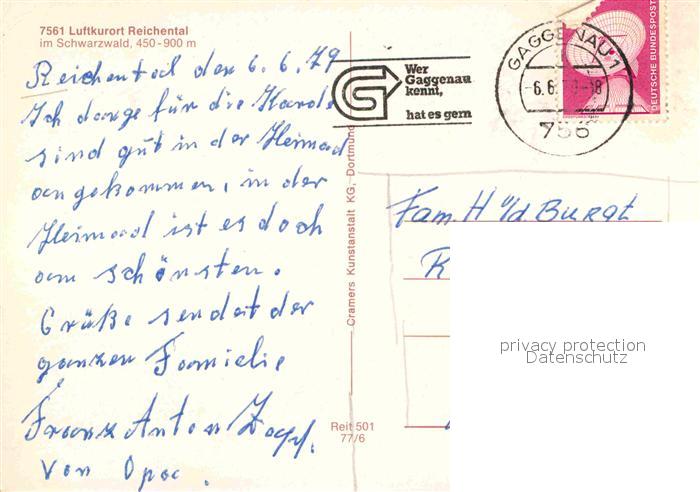 7561 Luftkurort Reichental
im Schwarzwald, 450-900 m
Reichental den 6. 6. 79
Ich dange für die Karde
sind gut in der Heimad
angekommen, in der
Heimad ist es doch
am schönsten.
Grüße sendet der
ganzen Familie
Franz Anton Zapf.
Von Opa.
Wer
Gaggenau
kennt,
hat es gern
GAGGENAU 1
-6.6. 79-18
756
DEUTSCHE BUNDESPOST
Cramers Kunstanstalt KG, Dortmund
Reit 501
77/6
Fam. H. u/d. Burgt
privacy protection
Datenschutz